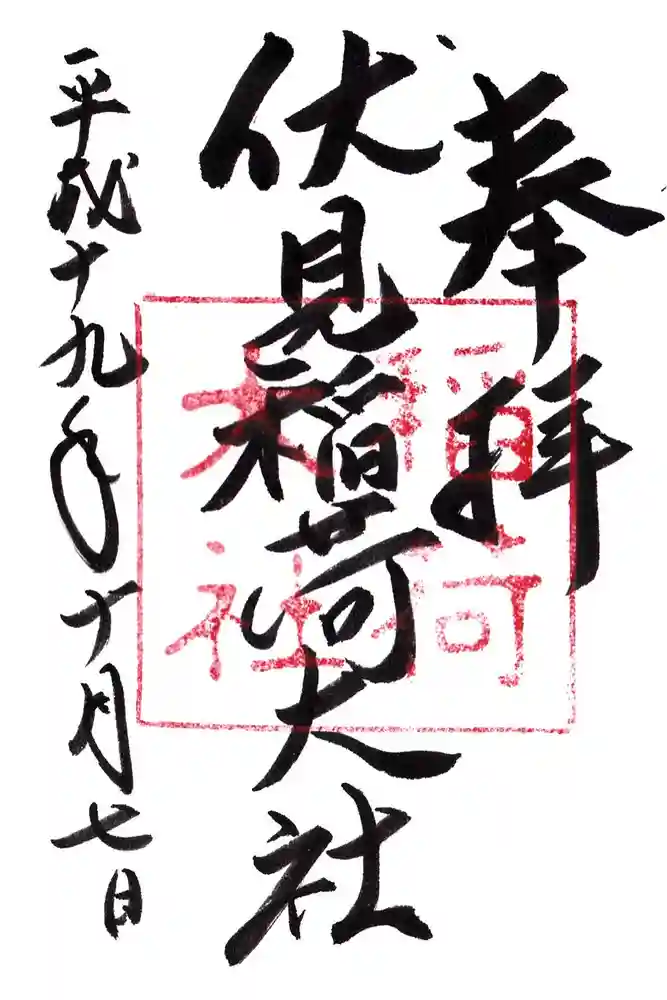 奉拝
伏見稲荷大社
稲荷
大社
平成十九年十月七日